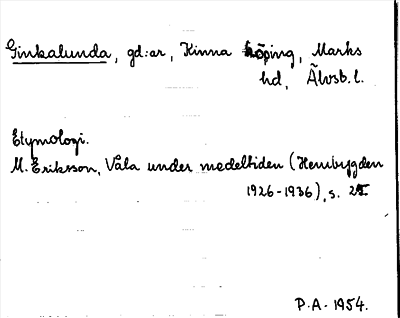 Ginkalunda, gd:ar, Kinna köping, Marks
hd, Älvsb. l.
Etymologi.
M. Eriksson, Våla under medeltiden (Hembygden
1926-1936), s. 25.
P.A. 1954.